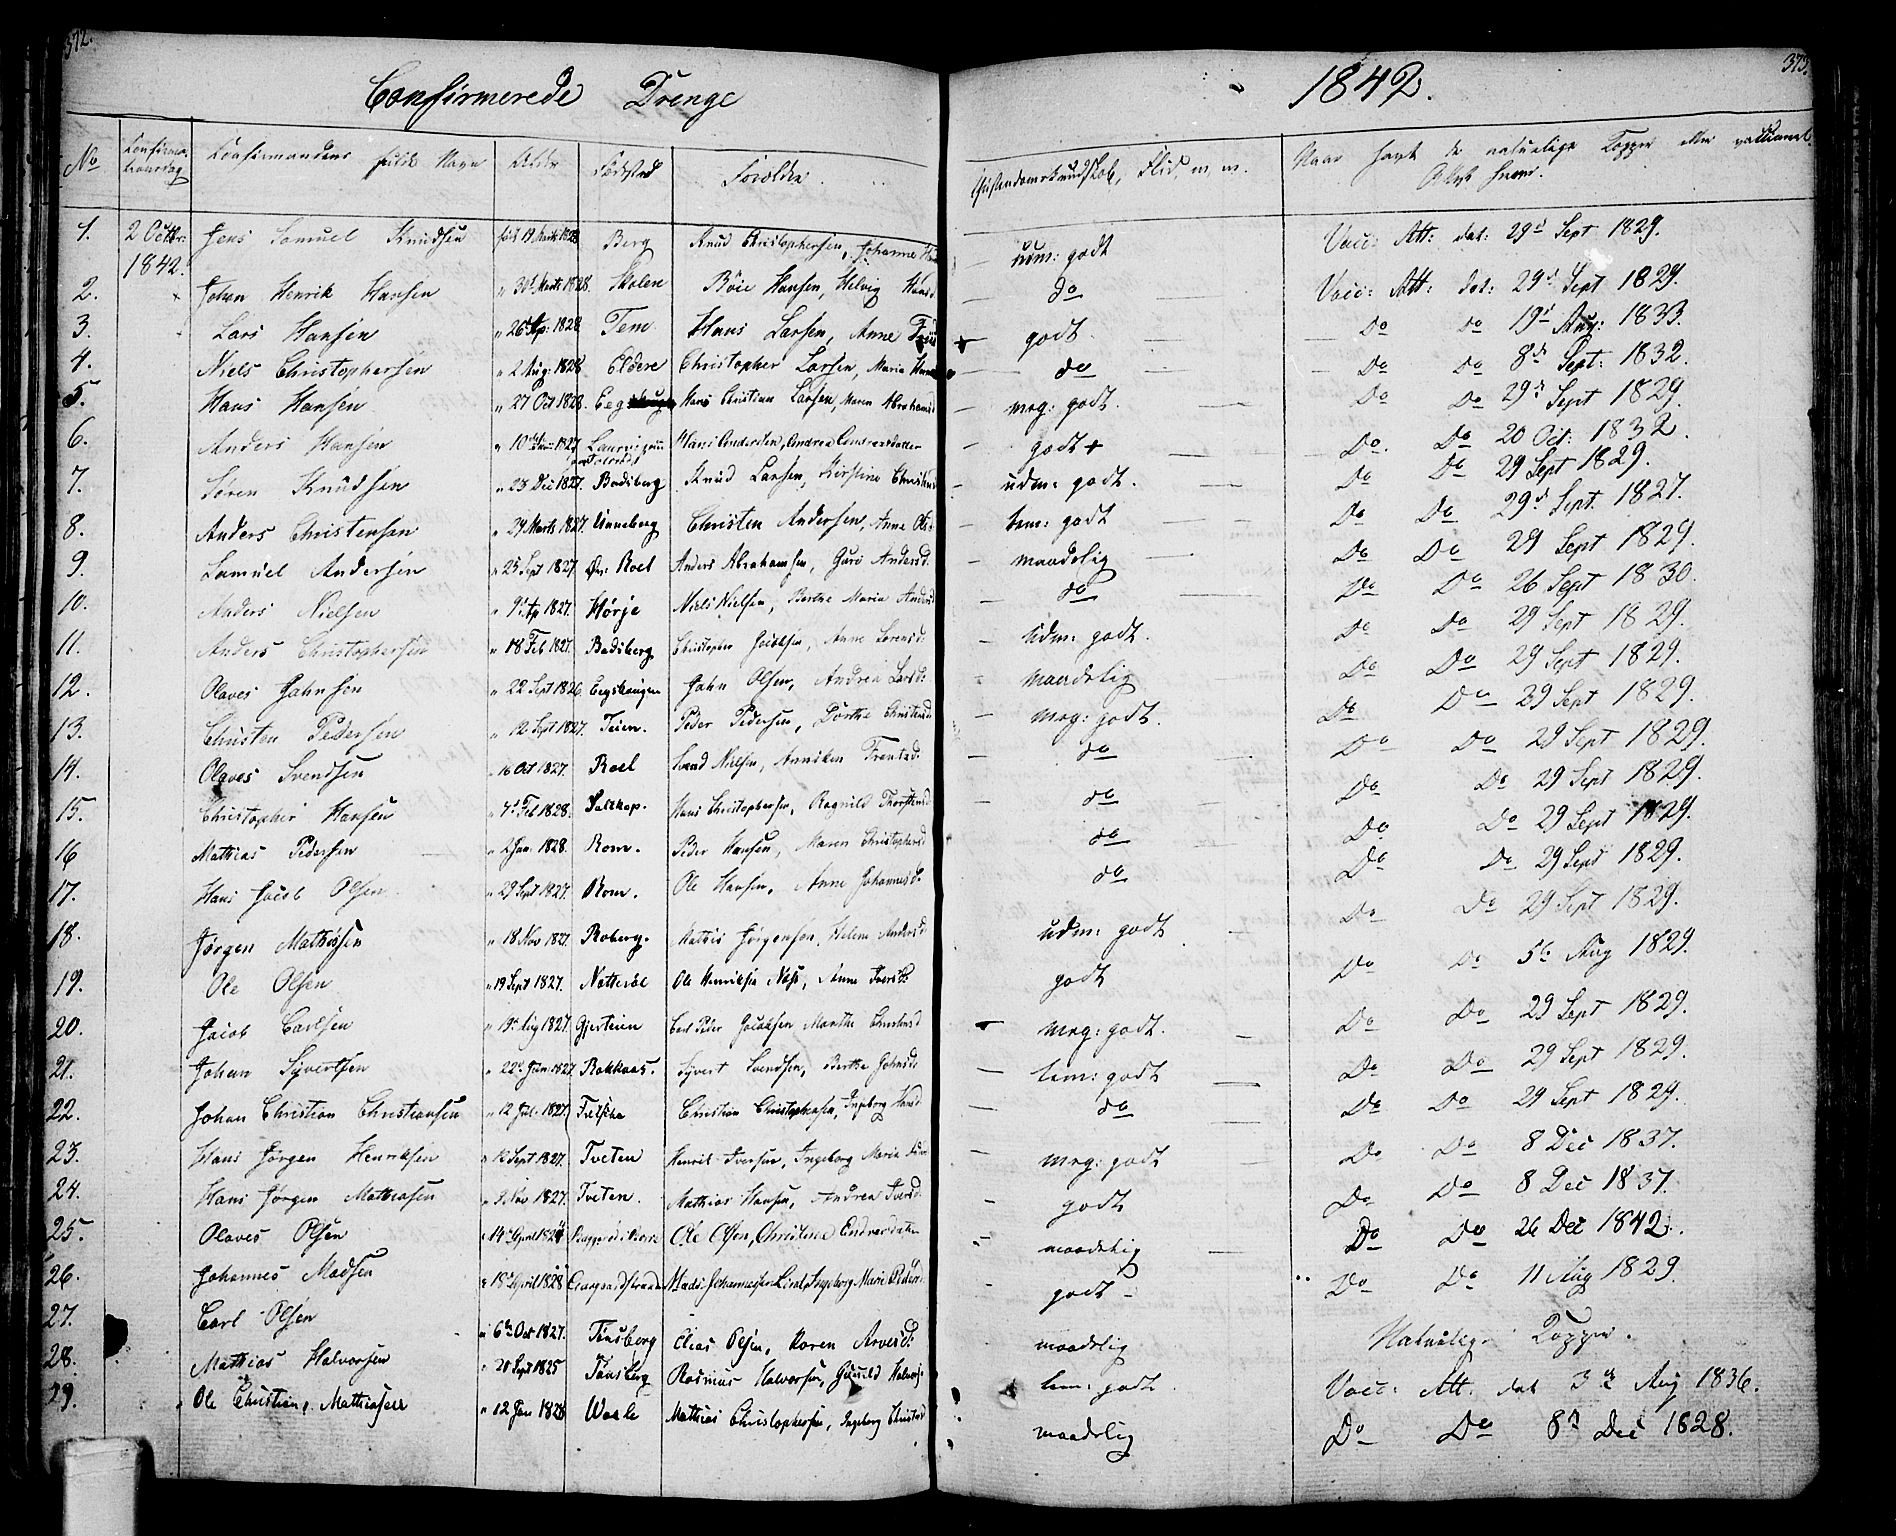 372.
Confirmerede Drenge
No Confirma- Confirmandens fulde Navn Alder Fødested Forældre
1. 2 Octbr: Jens Samuel Knudsen fød 19 Marts 1828 Berg Knud Christophersen, Johanne
1842.
2. Johan Henrik Hansen " 30 Marts 1828. Skolen Böie Hansen, Helvig Hansd
3. Lars Hansen " 26 Ap: 1828 Tem Hans Larsen, Anne
4. Niels Christophersen " 2 Aug: 1828 Eldere Christopher Larsen, Maria
5. Hans Hansen " 27 Oct 1828. Hans Christian Larsen, Maren Abrahamsd
6. Anders Hansen " 10 1827 Hans Andersen, Andrea
7. Søren Knudsen " 23 Dec 1827. Badsberg Knud Larsen, Kirstine
8. Anders Christensen " 29 Marts 1827. Unneberg Christen Andersen, Anne
9. Samuel Andersen " 25 Sept 1827 Roel Anders Abrahamsen, Guri Andersd.
10. Anders Nielsen " 9 Ap 1827. Hørje Niels Nielsen, Berthe Maria Andersd
11. Anders Christophersen " 18 Feb 1827. Badsberg Christopher Jacobsen, Anne Lorensd.
12. Olaves Jahnsen " 22 Sept 1826 Eegskougen Jahn Olsen, Andrea Larsd.
13. Christen Pedersen " 12 Sept 1827. Teien. Peder Pedersen, Dorthe Christensd
14. Olaves Svendsen " 16 Oct 1827. Roel Svend Nielsen, Anniken
15. Christopher Hansen " 7 Feb 1828. Saltkop. Hans Christophersen, Ragnild Thorstensd
16 Mathias Pedersen " 2 Jan. 1828. Rom. Peder Hansen, Maren Christophersd
17. Hans Jacob Olsen " 29 Sept 1827. Rom. Ole Hansen, Anne Johannesd.
18. Jørgen Mathisen " 18 Nov 1827. Roberg. Mathis Jørgensen, Helene Andersd
19. Ole Olsen " 19 Sept 1827. Natterøe Ole Henriksen Næss, Anne Iversd.
20. Jacob Carlsen " 19 Aug 1827. Gjerteien Carl Peder Jacobsen Marthe
21. Johan Syvertsen " 22 Jan. 1827. Rakkaas. Syvert Svendsen, Berthe Johnsd.
22. Johan Christian Christiansen " 12 Jul. 1827. Christian Christophersen, Ingeborg Hansd
23. Hans Jørgen Henriksen " 12 Sept 1827. Tveten Henrik Iversen, Ingeborg Maria
24. Hans Jørgen Mathiasen " 9 Nov 1827. Tveten. Mathias Hansen, Andrea Iversd.
25. Olaves Olsen " 14 April 182 Ole Olsen, Christine
26. Johannes Madsen " 18 April 1828 Mads Johannesen Ingeborg Marie
27. Carl Olsen " 6 Oct 1827. Tønsberg Elias Olsen, Karen Arvesd.
28. Mathias Halvorsen " 20 Sept 1825 Tønsberg Rasmus Halvorsen, Gunild Halvors:
29. Ole Christian Mathiesen " 12 Jan 1828 Waale Mathias Christophersen, Ingeborg Christensd
1842. 373.
Christendomskundskab, Flid, m, m. Naar havt de naturlige Kopper eller vaccineret.
udm: godt Vacc: Att: dat: 29d Sept 1829.
do Vacc: Att: dat: 29d Sept 1829.
godt. Do Do 19d Aug: 1833.
do Do Do 8d Sept: 1832.
mrg: godt. Do Do 29d Sept 1829.
godt + Do. Do 20 Oct: 1832.
udm: godt. Do Do 29 Sept 1829.
tem: godt Do Do 29d Sept. 1827.
maadelig Do Do 29 Sept 1829.
do Do Do 26 Sept 1830.
udm: godt. Do Do 29 Sept 1829.
maadelig Do Do 29 Sept 1829.
mrg: godt. Do Do 29 Sept 1829.
do Do Do 29 Sept 1829.
do Do Do 29 Sept 1829.
do Do Do 29 Sept 1829.
do Do Do 29 Sept 1829.
udm: godt Do Do 29 Sept 1829.
godt Do Do 5t Aug 1829.
mrg: godt. Do Do 29 Sept 1829.
tem: godt Do Do 29 Sept 1829.
do Do Do 29 Sept 1829.
mrg: godt Do Do 8 Dec 1837.
godt Do Do 8 Dec 1837.
maadelig Do Do 26 Dec 1842.
godt Do Do 11 Aug 1829.
maadelig Naturlige Kopper.
tem: godt. Vacc: Att: dat 3die Aug 1836.
maadelig Do Do 8d Dec 1828.